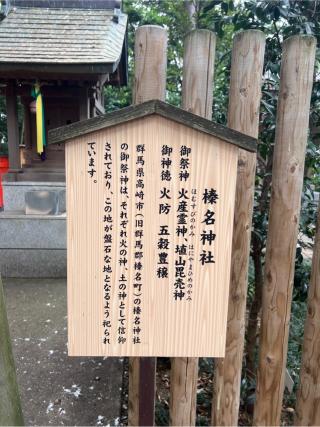 榛名神社
御祭神 火産霊神、埴山毘売神
ほむすびのかみ はにやまひめのかみ
御神徳 火防 五穀豊穣
群馬県高崎市（旧群馬郡榛名町）の榛名神社
の御祭神は、それぞれ火の神、土の神として信仰
されており、この地が盤石な地となるよう祀られ
ています。